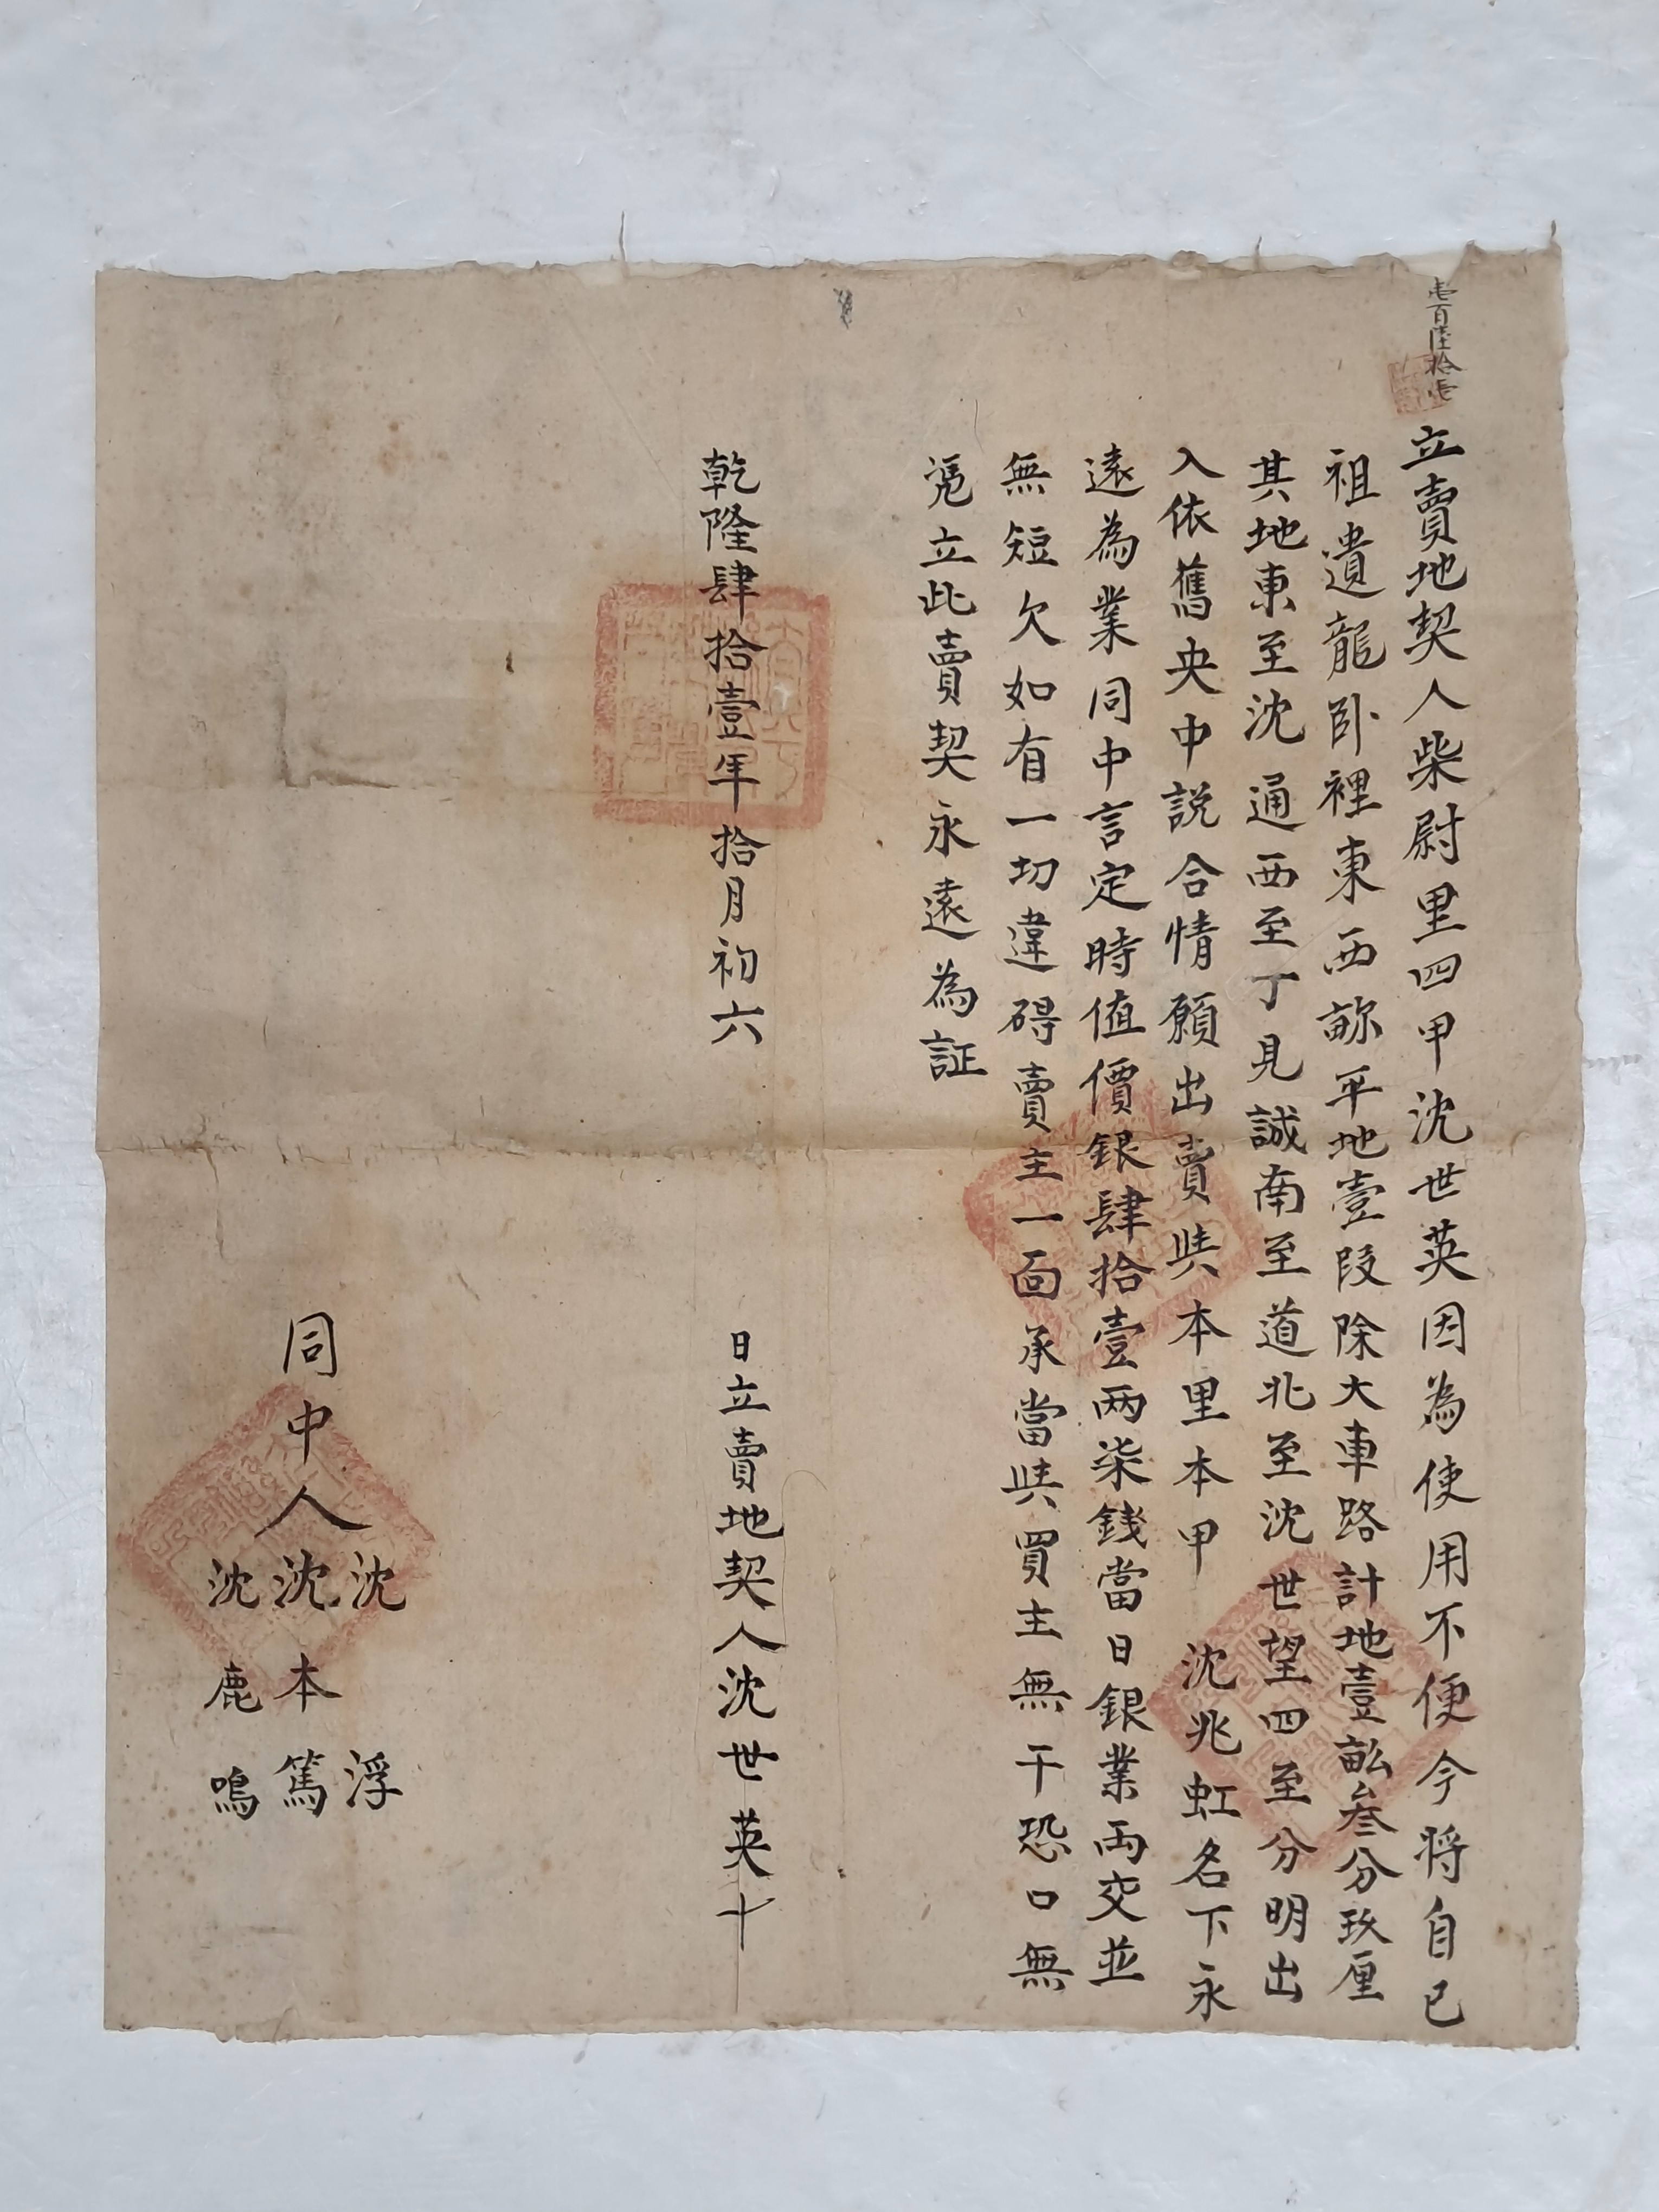 壹百陸拾壹
立賣地契人柴尉里四甲沈世英因為使用不便今將自己
祖遺龍臥裡東西畛平地壹段除大車路計地壹畝叁分玖厘
其地東至沈通西至丁見誠南至道北至沈世望四至分明出
入依舊央中説合情願出賣與本里本甲沈兆虹名下永
遠為業同中言定時值價銀肆拾壹两柒錢當日銀業両交並
無短欠如有一切違碍賣主一面承當與買主無干恐口無
凭立此賣契永遠為証
乾隆肆拾壹年拾月初六日立賣地契人沈世英十
同中人
沈浮
沈本篤
沈鹿鳴